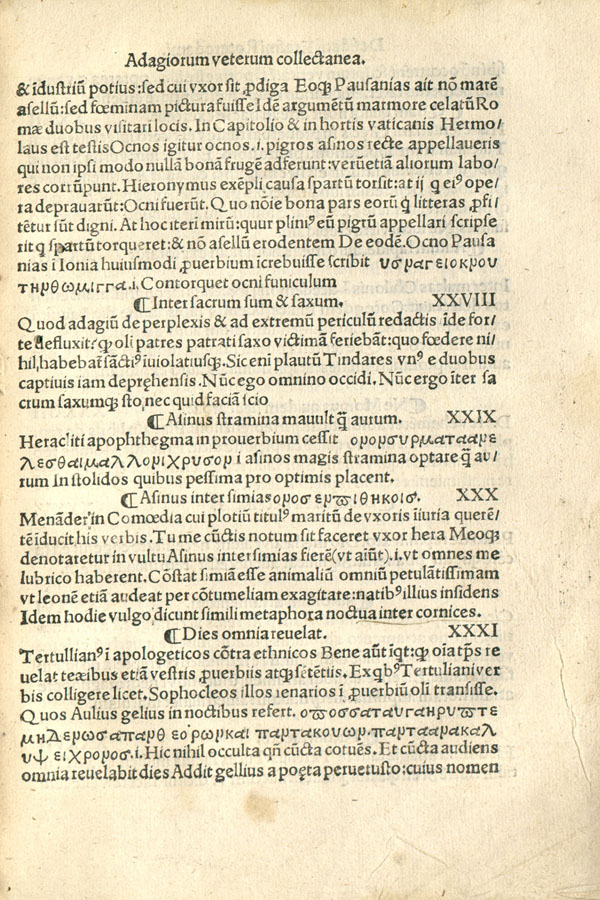 Adagiorum veterum collectanea.
& ĩdustriũ potius: sed cui vxor sit ꝓdiga Eoqꝫ Pausanias ait nõ marẽ
asellũ: sed fœminam pictura fuisse Idẽ argumẽtũ marmore celatũ Ro
mæ duobus visitari locis. In Capitolio & in hortis vaticanis Hermo/
laus est testis Ocnos igitur ocnos .i. pigros asinos recte appellaueris
qui non ipsi modo nullã bonã frugẽ adferunt: verũ etiã aliorum labo/
res corrũpunt. Hieronymus exẽpli causa spartũ torsit: at ij q̃ eiꝰ ope/
ra deprauarũt: Ocni fuerũt. Quo nõie bona pars eorũ q̃ litteras ꝓfi/
tẽtur sũt digni. At hoc iterũ mirũ: quur pliniꝰ eũ pigrũ appellari scripse
rit qꝫ spartũ torqueret: & nõ asellũ erodentem De eodẽ. Ocno Pausa
nias ĩ Ionia huiusmodi ꝓuerbium ĩcrebuisse scribit υσραγειοκρου
τηρθωμιγγα .i. Contorquet ocni funiculum
¶ Inter sacrum sum & saxum. XXVIII
Quod adagiũ de perplexis & ad extremũ periculũ redactis ĩde for/
te defluxit: ꝙ oli patres patrati saxo victimã feriebãt: quo fœdere ni/
hil, habebat̃ sãctiꝰ ĩuiolatiusqꝫ. Sic eni plautũ Tindares vnꝰ e duobus
captiuis iam depręhensis. Nũc ego omnino occidi. Nũc ergo ĩter sa
crum saxumqꝫ sto, nec quid faciã scio
¶ Asinus stramina mauult q̃ aurum. XXIX
Heracliti apophthegma in prouerbium cessit ορομσυρματααρε
λεσθαιμαλλομιχρυσορ i asinos magis stramina optare q̃ au/
rum In stolidos quibus pessima pro optimis placent.
¶ Asinus inter simias οροσ ερϖιθηκοισ. XXX
Menãderꝰ in Comœdia cui plotiũ titulꝰ maritũ de vxoris iĩuria querẽ/
tẽ iducit, his verbis. Tu me cũctis notum sit faceret vxor hera Meoqꝫ
denotaretur in vultu Asinus inter simias fierẽ (vt aiũt) .i. vt omnes me
lubrico haberent. Cõstat simiã esse animaliũ omniũ petulãtissimam
vt leonẽ etiã audeat per cõtumeliam exagitare: natibꝰ illius insidens
Idem hodie vulgo dicunt simili metaphora noctua inter cornices.
¶ Dies omnia reuelat. XXXI
Tertullianꝰ ĩ apologeticos cõtra ethnicos Bene aũt ĩqt: ꝙ oĩa tp̃s re
uelat testibus etiã vestris ꝓuerbiis atqꝫ sẽtẽtiis. Ex qbꝰ Tertuliani ver
bis colligere licet. Sophocleos illos senarios ĩ ꝓuerbiũ oli transisse.
Quos Aulius gelius in noctibus refert. οϖοσσαταυταηρυϖτε
μηΔερωσαπαρθ εορωρκαι παρτακουωρ.παρτααρακαλ
υψ ειχρορος .i. Hic nihil occulta qñ cũcta cotuẽs. Et cũcta audiens
omnia reuelabit dies Addit gellius a poęta peruetusto: cuius nomen